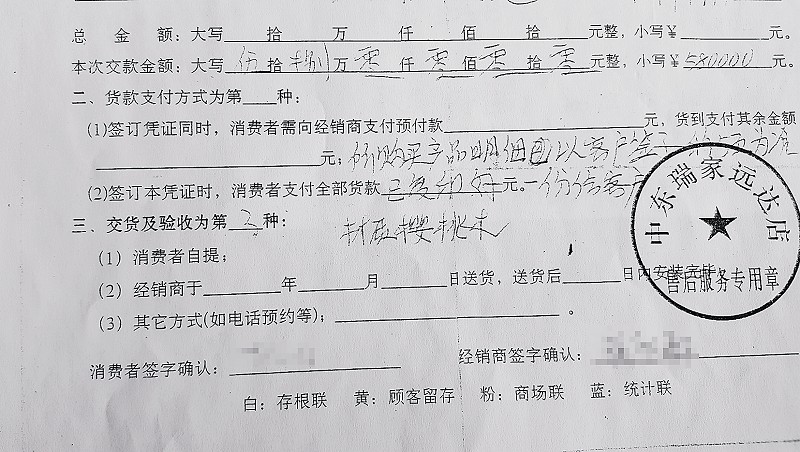 总 金 额：大写 拾 万 仟 佰 拾 元整，小写￥ 元。
本次交款金额：大写 伍 拾 捌 万 零 仟 零 佰 零 拾 零 元整，小写￥ 580000 元。
二、货款支付方式为第 种：
(1)签订凭证同时，消费者需向经销商支付预付款 元，货到支付其余金额
元；所购买产品明细 以客户签字 为准
(2)签订本凭证时，消费者支付全部货款 元。一份给客户
三、交货及验收为第 3 种： 材质樱桃木
（1）消费者自提；
（2）经销商于 年 月 日送货，送货后 日内安装完毕
（3）其它方式(如电话预约等)； 。
中东瑞家远达店
售后服务专用章
消费者签字确认： 经销商签字确认：
白：存根联 黄：顾客留存 粉：商场联 蓝：统计联